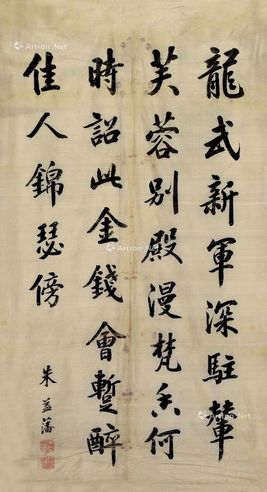 龍武新軍深駐輦
芙蓉別殿漫焚香何
時詔此金錢會蹔醉
佳人錦瑟傍
朱益藩
Artron.Net
Artron.Net
Artron.Net